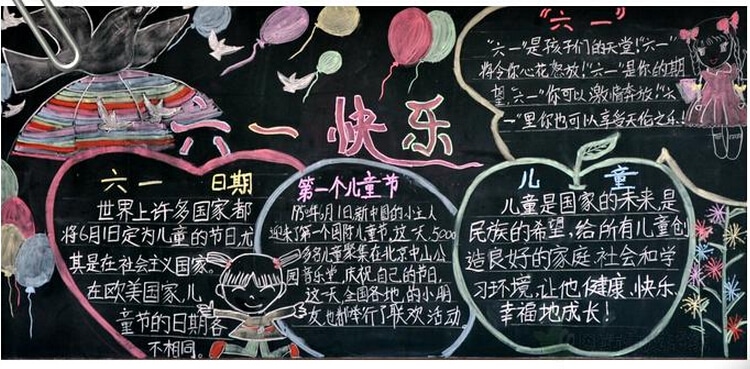 六一快乐
"六一"
"六一"是孩子们的天堂!"六一"
将令你心花怒放!"六一"是你的期
望,"六一"你可以激情奔放!"六
一"里你也可以享受天伦之乐!
六一 日期
世界上许多国家都
将6月1日定为儿童的节日尤
其是在社会主义国家。
在欧美国家,儿
童节的日期各
不相同。
第一个儿童节
6月1日新中国的小主人
迎来了第一个国际儿童节,这一天,5000
多名儿童聚集在北京中山公
园音乐堂,庆祝自己的节日,
这一天,全国各地的小朋
友也都举行了联欢活动
儿童
儿童是国家的未来,是
民族的希望,给所有儿童创
造良好的家庭、社会和学
习环境,让他健康、快乐、
幸福地成长!